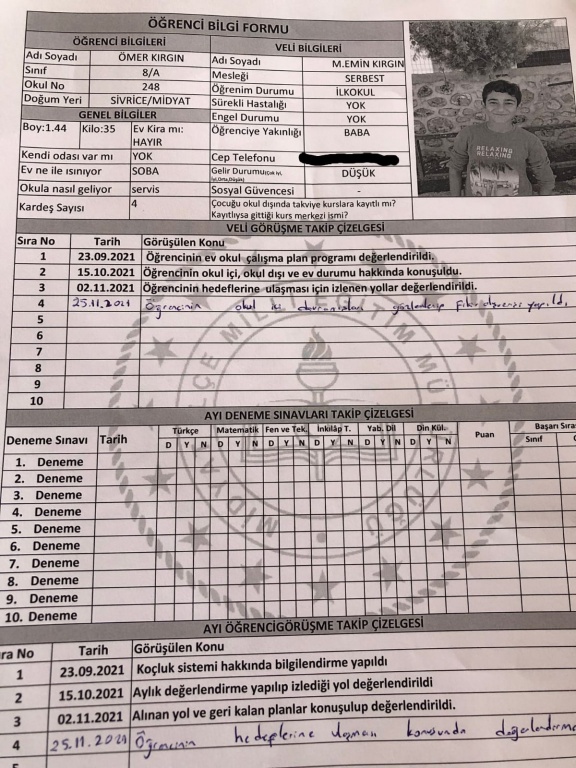 ÖĞRENCİ BİLGİ FORMU
ÖĞRENCİ BİLGİLERİ
Adı Soyadı ÖMER KIRGIN
Sınıf 8/A
Okul No 248
Doğum Yeri SİVRİCE/MİDYAT
GENEL BİLGİLER
Boy:1.44 Kilo:35 Ev Kira mı: HAYIR
Kendi odası var mı YOK
Ev ne ile ısınıyor SOBA
Okula nasıl geliyor servis
Kardeş Sayısı 4
VELİ BİLGİLERİ
Adı Soyadı M.EMİN KIRGIN
Mesleği SERBEST
Öğrenim Durumu İLKOKUL
Sürekli Hastalığı YOK
Engel Durumu YOK
Öğrenciye Yakınlığı BABA
Cep Telefonu
Gelir Durumu(Çok iyi, İyi,Orta,Düşük) DÜŞÜK
Sosyal Güvencesi -
Çocuğu okul dışında takviye kurslara kayıtlı mı?
Kayıtlıysa gittiği kurs merkezi ismi?
RELAXING
RELAXING
VELİ GÖRÜŞME TAKİP ÇİZELGESİ
Sıra No Tarih Görüşülen Konu
1 23.09.2021 Öğrencinin ev okul çalışma plan programı değerlendirildi.
2 15.10.2021 Öğrencinin okul içi, okul dışı ve ev durumu hakkında konuşuldu.
3 02.11.2021 Öğrencinin hedeflerine ulaşması için izlenen yollar değerlendirildi.
4 25.11.2021 Öğrencinin okul içi davranışları yapıldı.
5
6
7
8
9
10
AYI DENEME SINAVLARI TAKİP ÇİZELGESİ
Deneme Sınavı Tarih Türkçe Matematik Fen ve Tek. İnkılâp T. Yab. Dil Din Kül. Puan Başarı Sıra
D Y N D Y N D Y N D Y N D Y N D Y N Sınıf
1. Deneme
2. Deneme
3. Deneme
4. Deneme
5. Deneme
6. Deneme
7. Deneme
8. Deneme
9. Deneme
10. Deneme
AYI ÖĞRENCİGÖRÜŞME TAKİP ÇİZELGESİ
ra No Tarih Görüşülen Konu
1 23.09.2021 Koçluk sistemi hakkında bilgilendirme yapıldı
2 15.10.2021 Aylık değerlendirme yapılıp izlediği yol değerlendirildi
3 02.11.2021 Alınan yol ve geri kalan planlar konuşulup değerlendirildi.
4 25.11.2021 Öğrencinin hedeflerine ulaşması konusunda değerlendirme